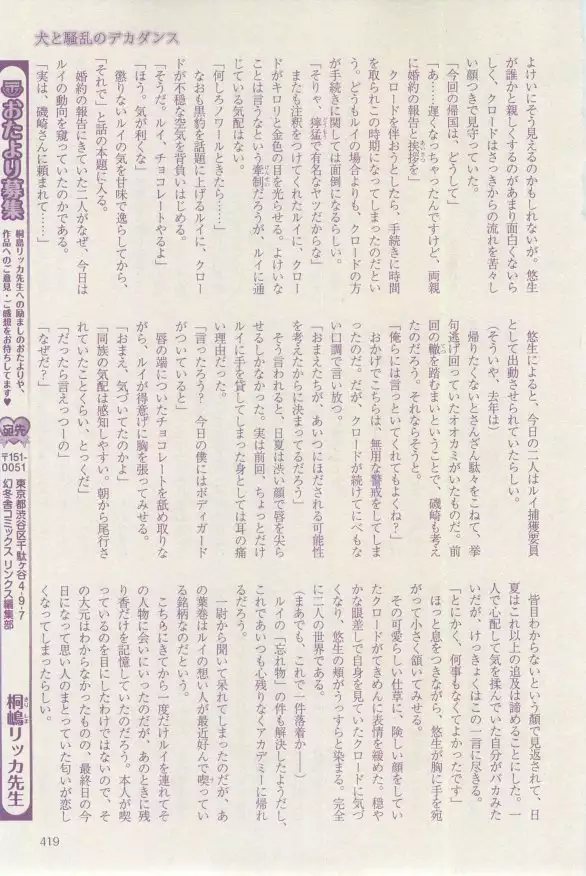 犬と騒乱のデカダンス
よけいにそう見えるのかもしれないが。悠生
が誰かと親しくするのがあまり面白くないら
しく、クロードはさっきからの流れを苦々し
い顔つきで見守っていた。
「今回の帰国は、どうして」
「あ……遅くなっちゃったんですけど、両親
に婚約の報告と挨拶を」
クロードを伴おうとしたら、手続きに時間
を取られこの時期になってしまったのだとい
う。どうもルイの場合よりも、クロードの方
が手続きに関しては面倒になるらしい。
「そりゃ、獰猛で有名なヤツだからな」
またも注釈をつけてくれたルイに、クロー
ドがキロリと金色の目を光らせる。よけいな
ことは言うなという牽制だろうが、ルイに通
じている気配はない。
「何しろノワールときたら……」
なおも黒豹を話題に上げるルイに、クロー
ドが不穏な空気を背負いはじめる。
「そうだ。ルイ、チョコレートやるよ」
「ほう。気が利くな」
懲りないルイの気を甘味で逸らしてから、
「それで」と話の本題に入る。
婚約の報告にきていた二人がなぜ、今日は
ルイの動向を窺っていたのかである。
「実は、磯崎さんに頼まれて……」
悠生によると、今日の二人はルイ捕獲要員
として出動させられていたらしい。
（そういや、去年は）
帰りたくないとさんざん駄々をこねて、挙
句逃げ回っていたオオカミがいたものだ。前
回の轍を踏むまいということで、磯崎も考え
たのだろう。それならそうと。
「俺らには言っといてくれてもよくね？」
おかげでこちらは、無用な警戒をしてしま
ったのだ。だが、クロードが続けてにべもな
い口調で言い放つ。
「おまえたちが、あいつにほだされる可能性
を考えたからに決まってるだろう」
そう言われると、日夏は渋い顔で唇を尖ら
せるしかなかった。実は前回、ちょっとだけ
ルイに手を貸してしまった身としては耳の痛
い理由だった。
「言ったろう？　今日の僕にはボディガード
がついていると」
唇の端についたチョコレートを舐め取りな
がら、ルイが得意げに胸を張ってみせる。
「おまえ、気づいてたのかよ」
「同族の気配は感知しやすい。朝から尾行さ
れていたことくらい、とっくだ」
「だったら言えっつーの」
「なぜだ？」
皆目わからないという顔で見返されて、日
夏はこれ以上の追及は諦めることにした。一
人で心配して気を揉んでいた自分がバカみた
いだが、けっきょくはこの一言に尽きる。
「とにかく、何事もなくてよかったです」
ほっと息をつきながら、悠生が胸に手を宛
がって小さく頷いてみせる。
その可愛らしい仕草に、険しい顔をしてい
たクロードがてきめんに表情を緩めた。穏や
かな眼差しで自身を見ていたクロードに気づ
くなり、悠生の頬がうっすらと染まる。完全
に二人の世界である。
（まあでも、これで一件落着か――）
ルイの「忘れ物」の件も解決したようだし、
これであいつも心残りなくアカデミーに帰れ
るだろう。
一尉から聞いて呆れてしまったのだが、あ
の葉巻はルイの想い人が最近好んで喫ってい
る銘柄なのだという。
こちらにきてから一度だけルイを連れてそ
の人物に会いにいったのだが、あのときに残
り香だけを記憶していたのだろう。本人が喫
っているのを目にしたわけではないので、そ
の大元はわからなかったものの、最終日の今
日になって思い人のまとっていた匂いが恋し
くなってしまったらしい。
おたより募集
桐嶋リッカ先生への励ましのおたよりや、
作品へのご意見・ご感想をお待ちしてます♥
宛先
〒151-0051
東京都渋谷区千駄ヶ谷4-9-7
幻冬舎コミックス リンクス編集部
桐嶋リッカ先生
きりしま
419